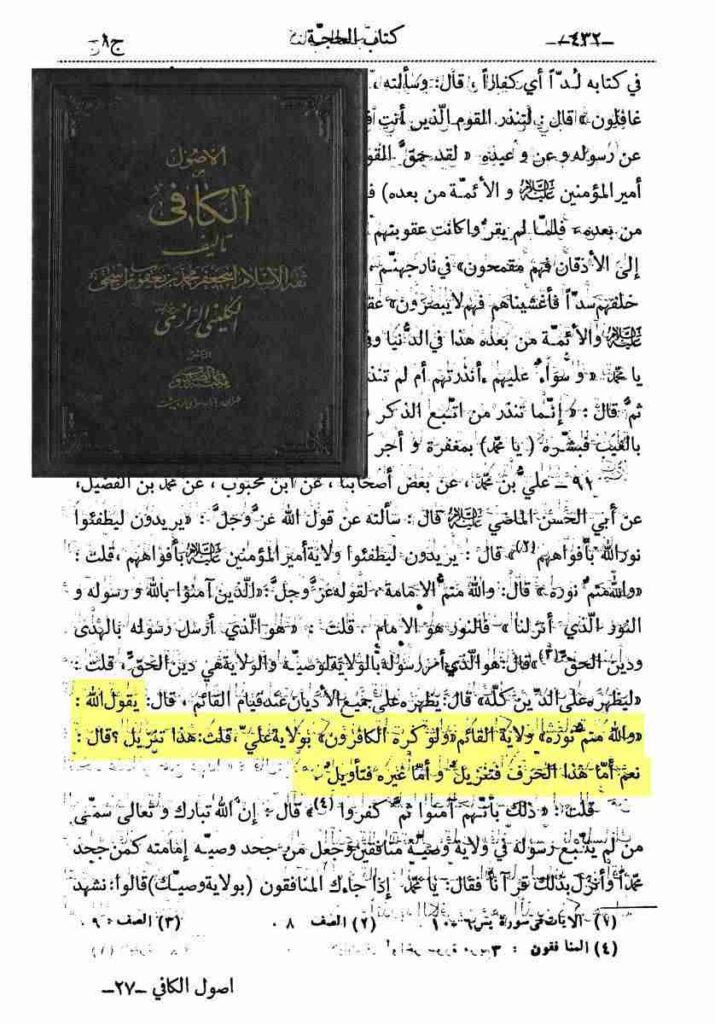 -٤٣٢- كتاب الحجّة ج١
في كتابه لُدّاً أي كفّاراً ، قال: وسألته ،
غافلون » قال : لتنذر القوم الّذين أنت ف
عن رسوله و عن وعيده « لقد حقَّ القو
أمير المؤمنين عليه السلام و الأئمّة من بعده) ف
من بعده، فلمّا لم يقرُّوا كانت عقوبتهم
إلى الأذقان فهم مقمحون» في نار جهنّم ،
خلفهم سدّاً فأغشيناهم فهم لا يبصرون» عقو
عليه السلام والأئمّة من بعده هذا في الدُّنيا وفي
يا محمّد « و سواءٌ عليهم ءأنذرتهم أم لم تنذ
ثمَّ قال : « إنّما تنذر من اتّبع الذكر (
بالغيب فبشّره ( يا محمّد) بمغفرة و أجر ك
الأصول
من
الكافي
تأليف
ثقة الإسلام أبي جعفر محمد بن يعقوب بن إسحق
الكليني الرازي
٩١ ـ عليُّ بن محمّد ، عن بعض أصحابنا ، عن ابن محبوب ، عن محمّد بن الفضيل،
عن أبي الحسن الماضي عليه السلام قال : سألته عن قول الله عزَّ وجلَّ : «يريدون ليطفئوا
نور الله بأفواههم (٢)» قال : يريدون ليطفئوا ولاية أمير المؤمنين عليه السلام بأفواههم ، قلت :
«والله متمُّ نوره » قال: والله متمُّ الإمامة، لقوله عزَّ وجلَّ: «الّذين آمنوا بالله و رسوله و
النور الّذي أنزلنا » فالنور هو الإمام ، قلت : « هو الّذي أرسل رسوله بالهدى
ودين الحقّ (٣)» قال: هو الّذي أمر رسوله بالولاية لوصيّه والولاية هي دين الحقِّ ، قلت :
«ليظهره على الدّين كلّه» قال: يظهره على جميع الأديان عند قيام القائم ، قال: يقول الله :
«والله متمُّ نوره» ولاية القائم «ولو كره الكافرون» بولاية عليّ ، قلت: هذا تنزيل ؟ قال :
نعم أمّا هذا الحرف فتنزيلٌ و أمّا غيره فتأويلٌ .
قلت : « ذلك بأنّهم آمنوا ثمَّ كفروا (٤)» قال : إنَّ الله تبارك و تعالى سمّى
من لم يتّبع رسوله في ولاية وصيّه منافقين وجعل من جحد وصيّه إمامته كمن جحد
محمّداً وأنزل بذلك قرآناً فقال: يا محمّد إذا جاءك المنافقون (بولاية وصيّك) قالوا: نشهد
(١) الآيات في سورة يس ٦-١٠ (٢) الصف : ٨ . (٣) الصف : ٩ .
(٤) المنافقون : ٣
اصول الكافي -٢٧-